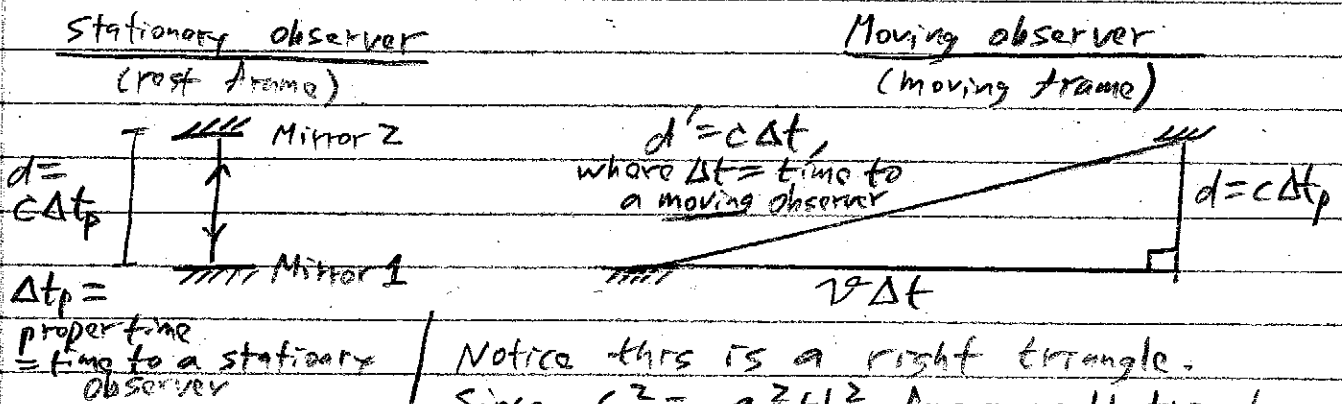 Stationary observer
(rest frame)
Mirror 2
d=
cΔtₚ
Mirror 1
Δtₚ=
proper time
= time to a stationary
observer
Moving observer
(moving frame)
d'=cΔt,
where Δt= time to
a moving observer
d=cΔtₚ
vΔt
Notice this is a right triangle.
Since c²= a²+b²